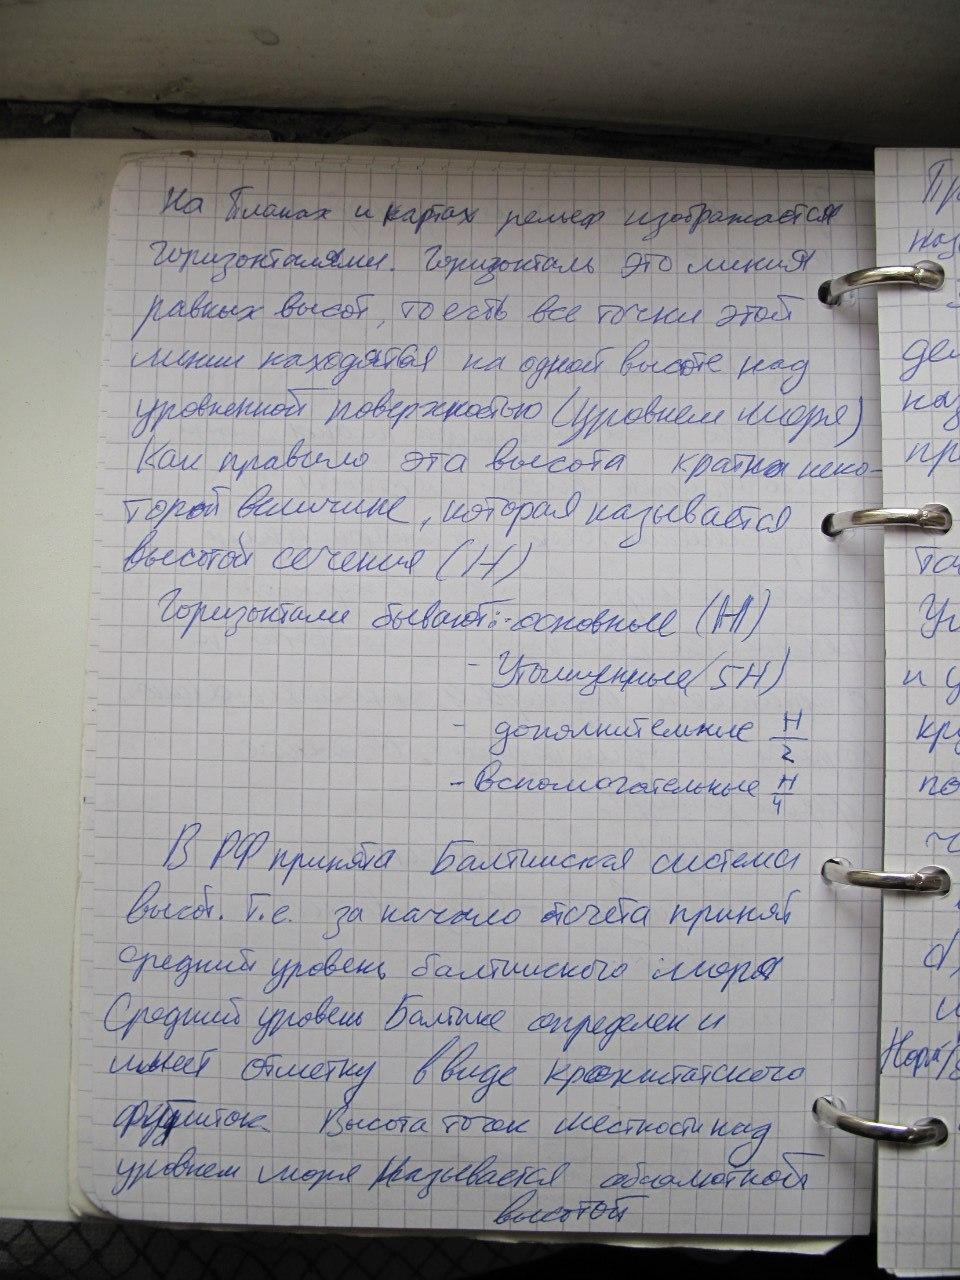 На Планах и картах рельеф изображается
горизонталями. Горизонталь это линия
равных высот, то есть все точки этой
линии находятся на одной высоте над
уровненной поверхностью (уровнем моря)
Как правило эта высота кратна неко-
торой величине, которая называется
высотой сечения (H)
Горизонтали бывают: - основные (H)
- Утолщенные (5H)
- дополнительные H/2
- Вспомогательные H/4
В РФ принята Балтийская система
высот. Т.е. за начало отсчета принят
средний уровень балтийского моря
Средний уровень Балтике определен и
имеет отметку в виде кронштатского
футшток. Высота точек местности над
уровнем моря называется абсолютной
высотой
Пр
наз
дел
наз
пр
Точ
Ур
и у
кру
по